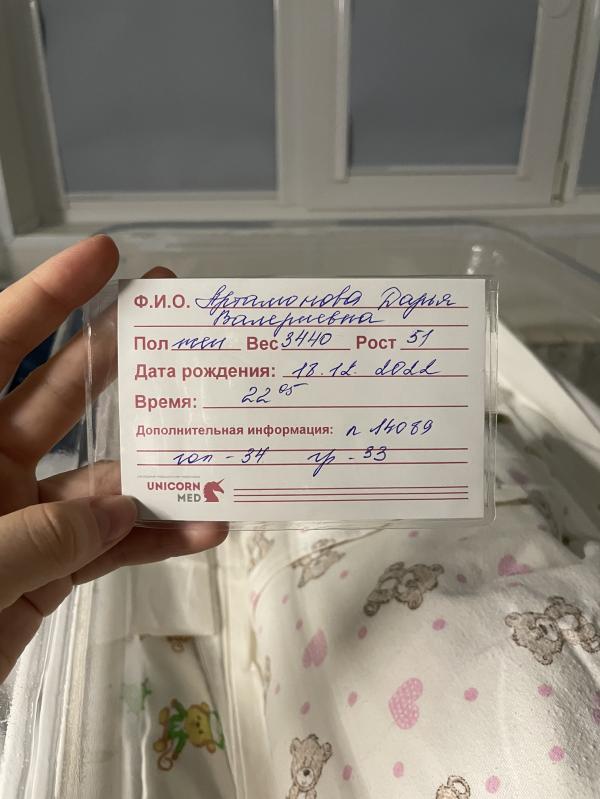 Ф.И.О. Артамонова Дарья
Валериевна
Пол жен Вес 3440 Рост 51
Дата рождения: 18.12.2022
Время: 22 05
Дополнительная информация: п 14089
гол - 34 гр - 33
UNICORN
MED